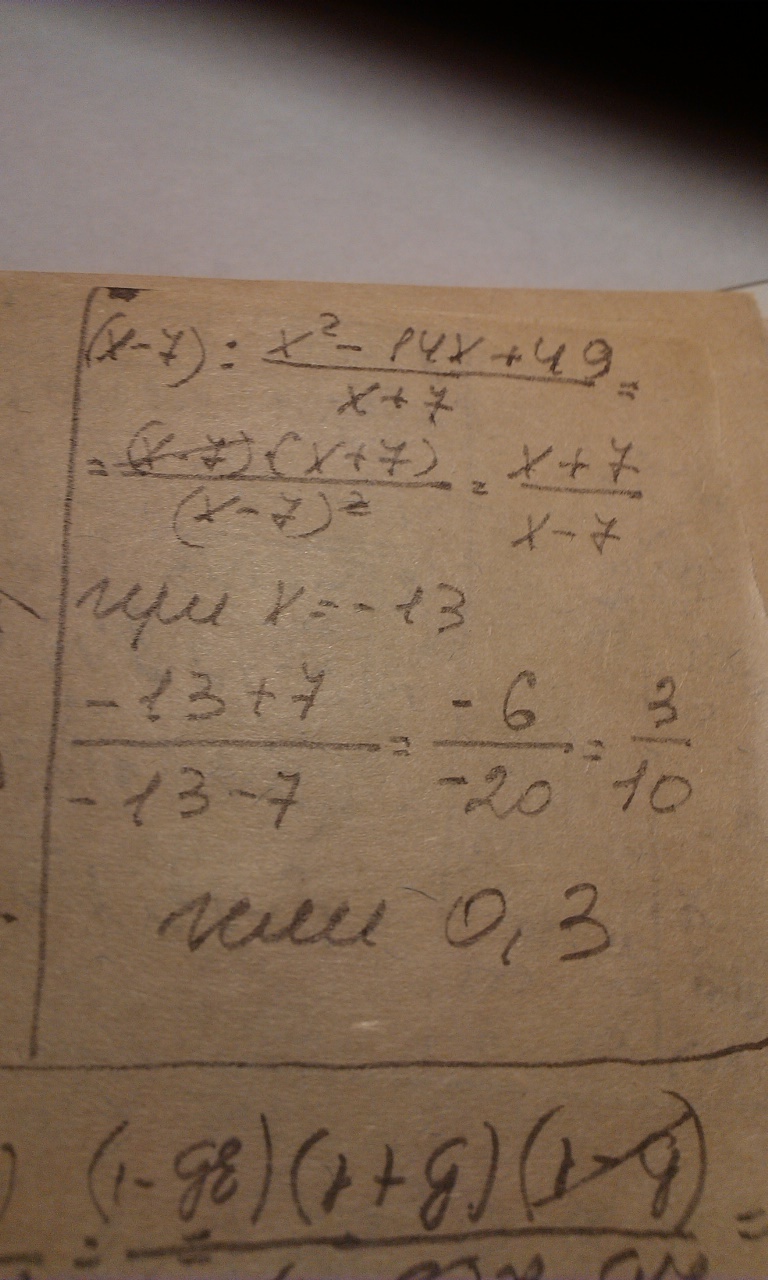 (x-7) : \frac{x^2 - 14x + 49}{x+7} =
= \frac{(x-7)(x+7)}{(x-7)^2} = \frac{x+7}{x-7}
при x = -13
\frac{-13+7}{-13-7} = \frac{-6}{-20} = \frac{3}{10}
или 0,3